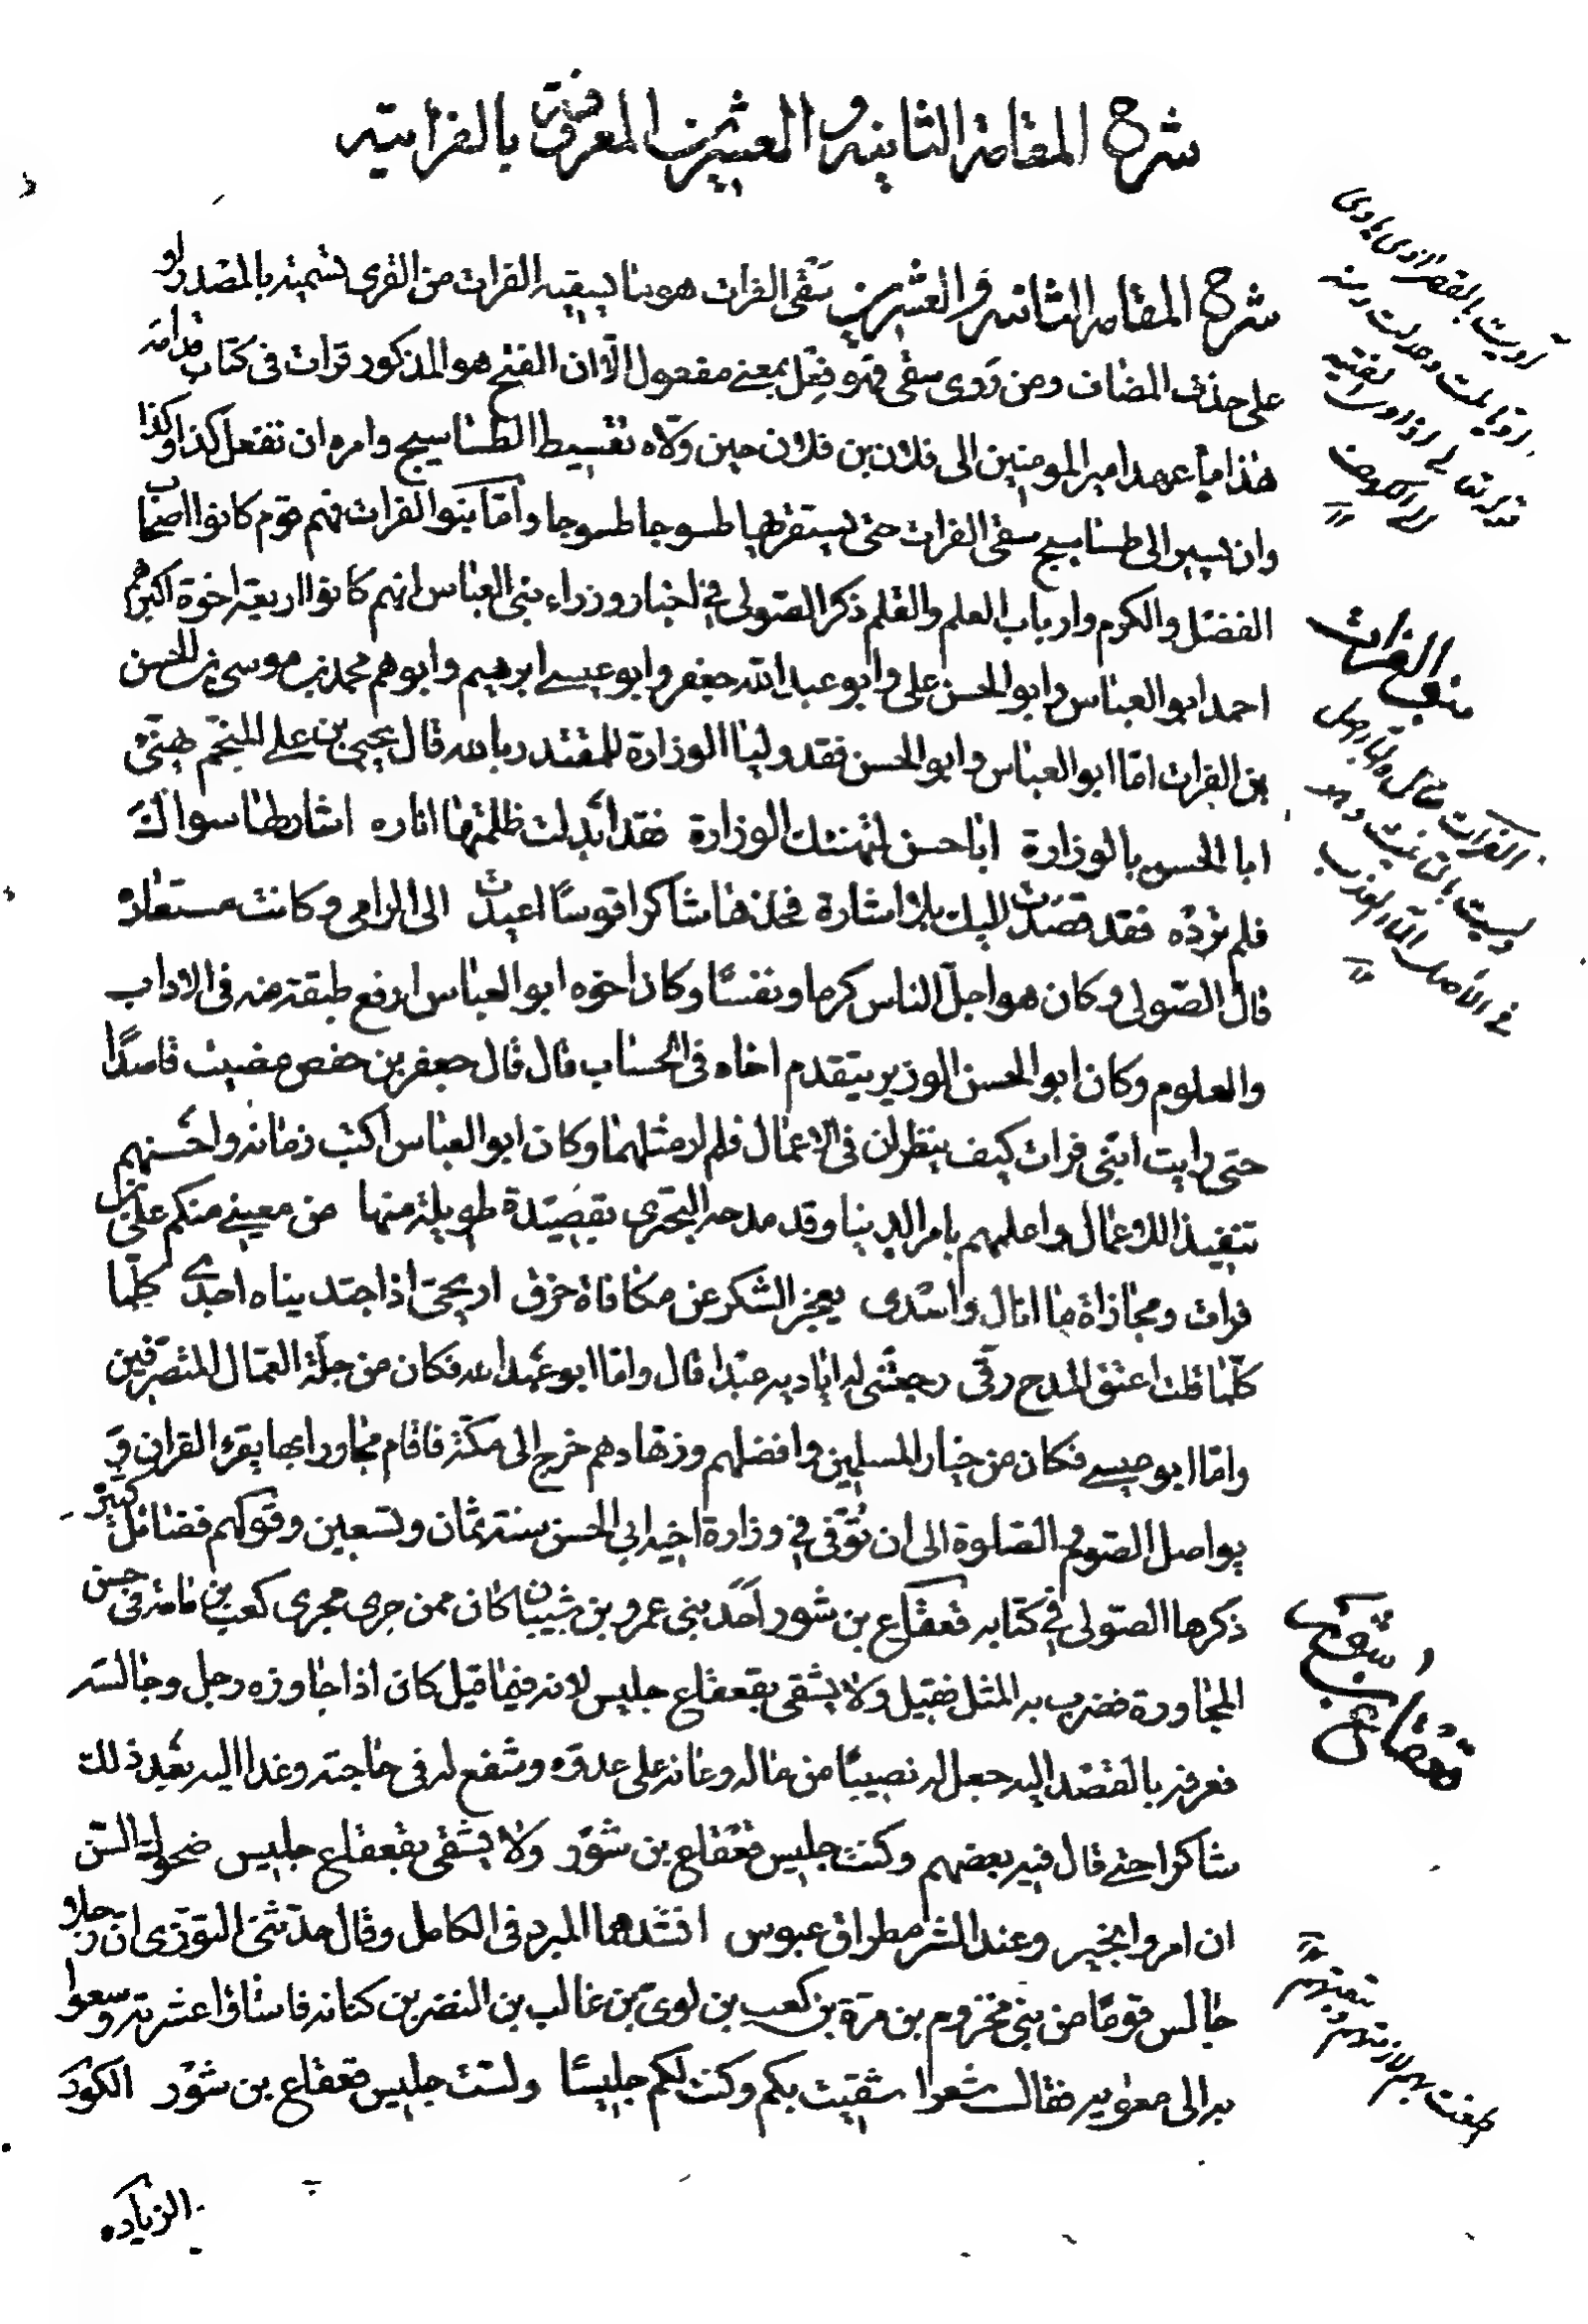 شرح المقامة الثانية والعشرين المعروفة بالفراتية
شرح المقامة الثانية والعشرين سَقْى الفرات هو ما يسقيه الفرات من القرى تسمية بالمصدر او
على حذف المضاف ومن روى سقى فهو فِعْل بمعنى مفعول الّا ان الفتح هو المذكور قرات فى كتاب قدامة
هذا ما عهد امير المومنين الى فلان بن فلان حين ولّاه تقسيط الطساسيج وامره ان تفعل كذا وكذا
وان يسير الى طساسيج سقى الفرات حتى يستقرئها طسوجا طسوجا وأمّا بنوا الفرات فهم قوم كانوا اصحاب
الفضل والكرم وارباب العلم والقلم ذكر الصّولى فى اخبار وزراء بنى العباس انهم كانوا اربعة اخوة اكبرهم
احمد ابو العباس وابو الحسن على وابو عبد الله جعفر وابو عيسى ابرهيم وابوهم محمد بن موسى بن الحسن
بن الفرات امّا ابو العباس وابو الحسن فقد وليا الوزارة للمقتدر بالله قال يحيى بن على المنجّم يهنّئ
ابا الحسن بالوزارة ابا حسن لتهنئك الوزارة فقد أبدلت ظلمتها اناره اشار بها سواك
فلم نُرِدْه فقد قصَدَت اليك بلا اشارة فخذها شاكرا قوسًا اعيدت الى الرامى وكانت مستعاره
قال الصّولى وكان هو اجلّ الناس كرما ونفسًا وكان اخوه ابو العباس ارفع طبقة منه فى الاداب
والعلوم وكان ابو الحسن الوزير يتقدم اخاه فى الحساب قال قال جعفر بن حفص مضيت قاصدًا
حتى رايت ابنى فرات كيف ينظران فى الاعمال فلم ار مثلهما وكان ابو العباس اكتب زمانه واحسنهم
تنفيذا للاعمال واعلمهم بامر الدنيا وقد مدحه البحترى بقصيدة طويلة منها من معينى منكم على بن
فرات ومجازاة ما انال واسْدى يعجز الشكر عن مكافاة خرق اريحى اذا اجتديناه اجدى كلّما
كلّما قلت اعتق المدح رقّى رجعتنى له اياديه عبْدا قال وامّا ابو عبد الله فكان من جلّة العمّال المتصرّفين
وامّا ابو عيسى فكان من خيار المسلمين وافضلهم وزهّادهم خرج الى مكّة فاقام مجاورا بها يقرء القران و
يواصل الصّوم والصّلوة الى ان تُوُفّى فى وزارة اخيه ابى الحسن سنة ثمان وتسعين وقولهم فضائل كثيرة
ذكرها الصّولى فى كتابه قعقاع بن شور احد بنى عمرو بن شيبان كان ممن جرى مجرى كعب بن مامة فى حسن
المجاورة فضرب به المثل فقيل ولا يشقى بقعقاع جليس لانه فيما قيل كان اذا جاوره رجل وجالسه
فعرفه بالقصد اليه جعل له نصيبًا من ماله وعانه على عدوّه وشفع له فى حاجته وغدا اليه بعد ذلك
شاكرا حتى قال فيه بعضهم وكنت جليس قعْقاع بن شوْر ولا يشقى بقعقاع جليس ضحوك السّن
ان امروا بخير وعند الشر مطراق عبوس انشدهما المبرد فى الكامل وقال حدّثنى التوّزى ان رجلا
جالس قومًا من بنى مخزوم بن مرّة بن كعب بن لوىّ بن غالب بن النضر بن كنانة فاساؤا عشرته وسعوا
به الى معوية فقال شعرا شقيت بكم وكنت لكم جليسًا ولست جليس قعقاع بن شوْر الكوَد
الزياده
بنو الفرات
قعقاع بن شور